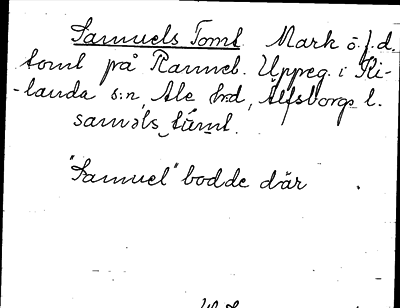 Samuels Tomt Mark ö. f. d.
tomt på Ranneb. Uppeg. i Ki-
-landa s:n, Ale hrd, Älfsborgs l.
saməls tômt.
"Samuel" bodde där.